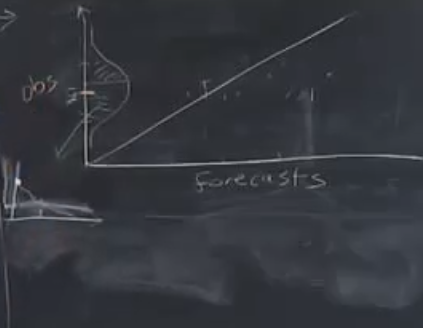 obs
forecasts